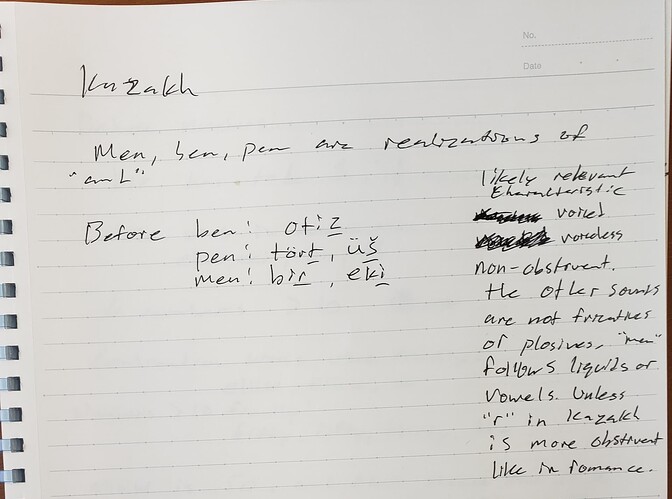 No.
Date
Kazakh
Men, ben, pen are realizations of
"and"
Before ben: otiz
pen: tört, üš
men: bir, eki
likely relevant
characteristic
voiced
voiceless
non-obstruent.
the other sounds
are not fricatives
or plosives, "men"
follows liquids or
vowels. Unless
"r" in Kazakh
is more obstruent
like in romance.